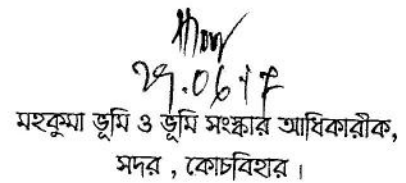 29.06.17
মহকুমা ভূমি ও ভূমি সংস্কার আধিকারীক,
সদর , কোচবিহার ।